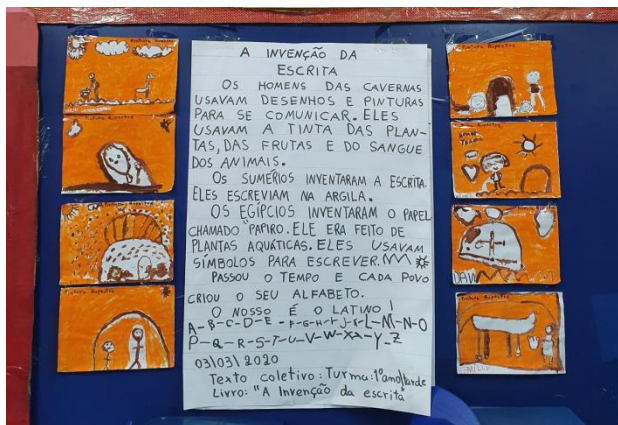 A INVENÇÃO DA
ESCRITA
OS HOMENS DAS CAVERNAS
USAVAM DESENHOS E PINTURAS
PARA SE COMUNICAR. ELES
USAVAM A TINTA DAS PLAN-
TAS, DAS FRUTAS E DO SANGUE
DOS ANIMAIS.
OS SUMÉRIOS INVENTARAM A ESCRITA.
ELES ESCREVIAM NA ARGILA.
OS EGÍPCIOS INVENTARAM O PAPEL
CHAMADO "PAPIRO. ELE ERA FEITO DE
PLANTAS AQUÁTICAS. ELES USAVAM
SÍMBOLOS PARA ESCREVER.
PASSOU O TEMPO E CADA POVO
CRIOU O SEU ALFABETO.
O NOSSO É O LATINO!
A-B-C-D-E-F-G-H-I-J-K-L-M-N-O
P-Q-R-S-T-U-V-W-X-Y-Z
03/03/2020
Texto coletivo: Turma: 1º ano/tarde
Livro: "A Invenção da escrita
Pintura Rupestre
Pintura Rupestre
Pintura Rupestre
Pintura Rupestre
Pintura Rupestre
Pintura Rupestre
Pintura Rupestre